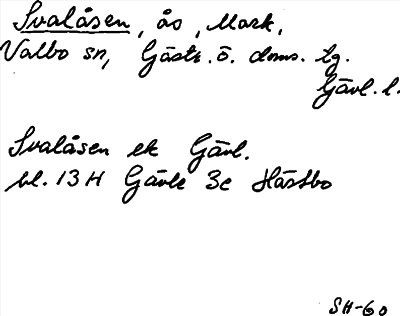 Svalåsen, ås, Mark,
Valbo sn, Gästr. ö. doms. tg.
Gävl. l.
Svalåsen ek Gävl.
bl. 13 H Gävle 3c Hästbo
SH-60